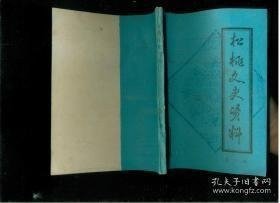 松桃文史资料
孔夫子旧书网